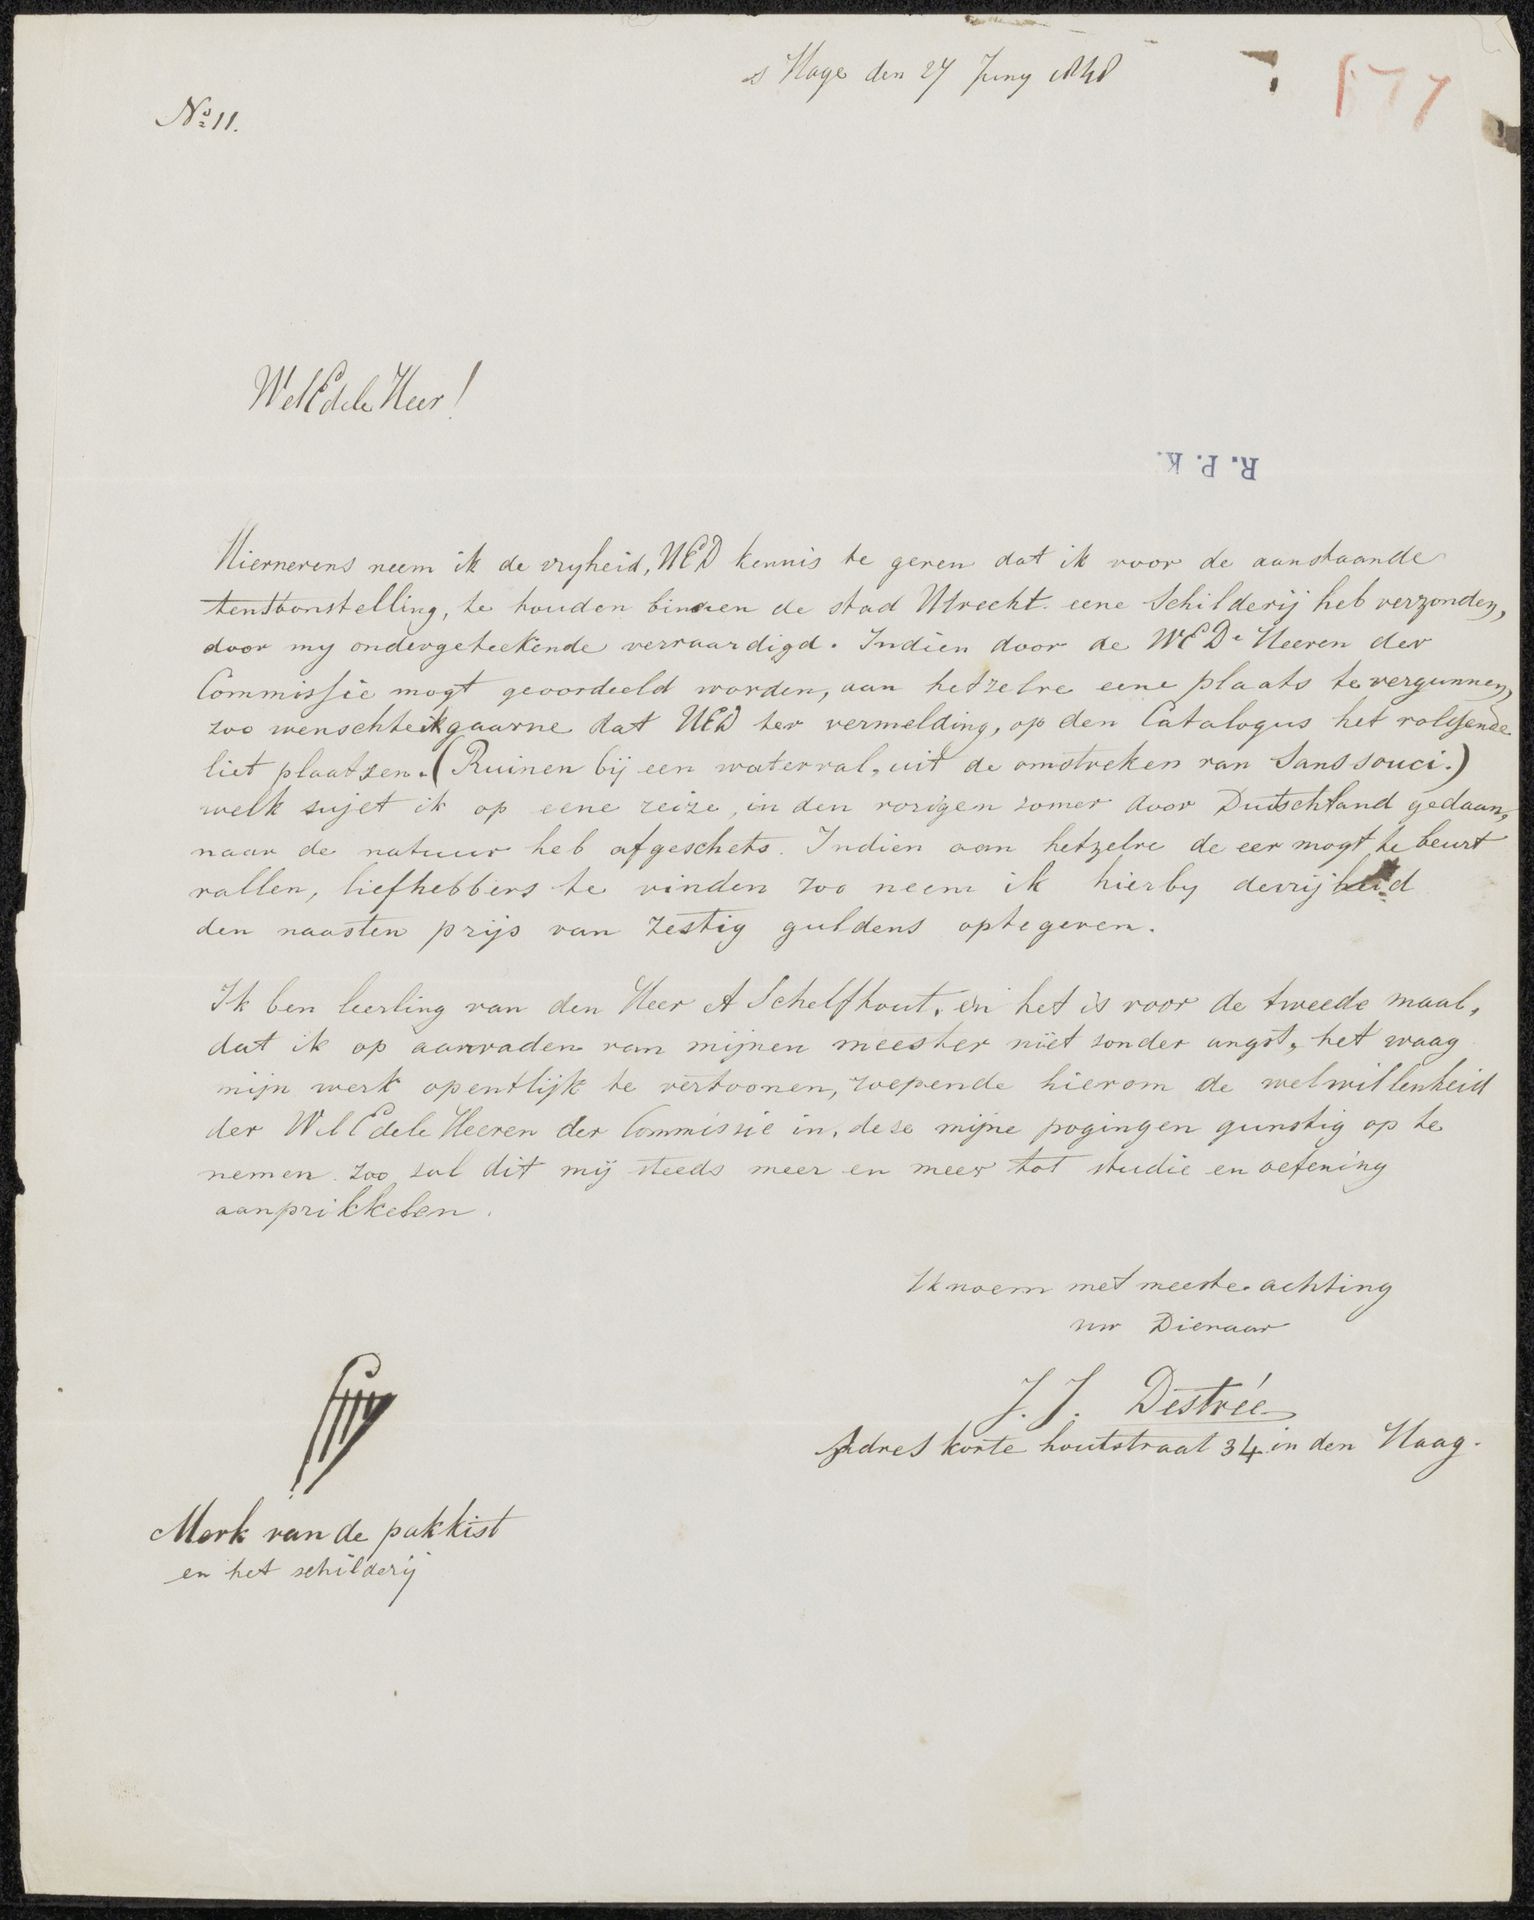 s Hage den 27 Juny 1848
177
No 11.
WelEdele Heer!
R. P. K.
Hiernevens neem ik de vryheid, UED kennis te geven dat ik voor de aanstaande
tentoonstelling, te houden binnen de stad Utrecht eene Schilderij heb verzonden,
door my ondergeteekende vervaardigd. Indien door de WED. Heeren der
Commissie mogt geoordeeld worden, aan hetzelve eene plaats te vergunnen,
zoo wenschte ik gaarne dat UED ter vermelding, op den Catalogus het volgende
liet plaatzen. (Ruinen bij een waterval, uit de omstreken van Sanssouci.)
welk sujet ik op eene reize, in den vorigen zomer door Duitschland gedaan,
naar de natuur heb afgeschets. Indien aan hetzelve de eer mogt te beurt
vallen, liefhebbers te vinden zoo neem ik hierby de vrijheid
den naasten prijs van zestig guldens optegeven.
Ik ben leerling van den Heer A Schelfhout, en het is voor de tweede maal,
dat ik op aanraden van mijnen meester niet zonder angst, het waag
mijn werk opentlijk te vertoonen, roepende hierom de welwillenheid
der WelEdele Heeren der Commissie in, deze mijne pogingen gunstig op te
nemen zoo zal dit mij steeds meer en meer tot studie en oefening
aanprikkelen.
Ik noem met meeste achting
uw Dienaar
J. J. Destrée
Adres korte houtstraat 34 in den Haag.
Merk van de pakkist
en het schilderij